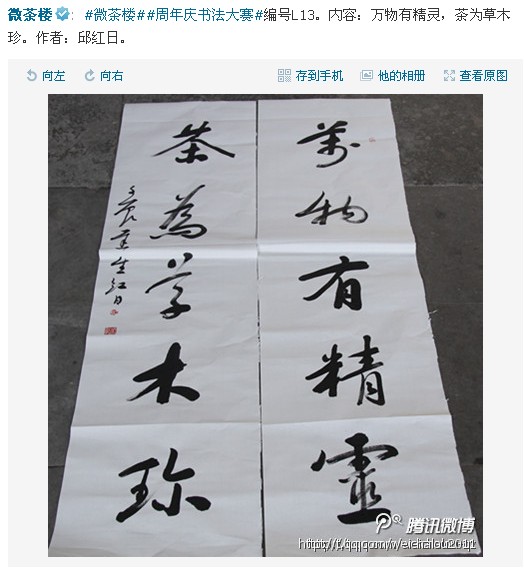 微茶楼 : #微茶楼##周年庆书法大赛#编号L13。内容：万物有精灵，茶为草木
珍。作者：邱红日。
向左 向右 存到手机 他的相册 查看原图
萬物有精靈
茶為草木珍
壬辰 生红日
腾讯微博